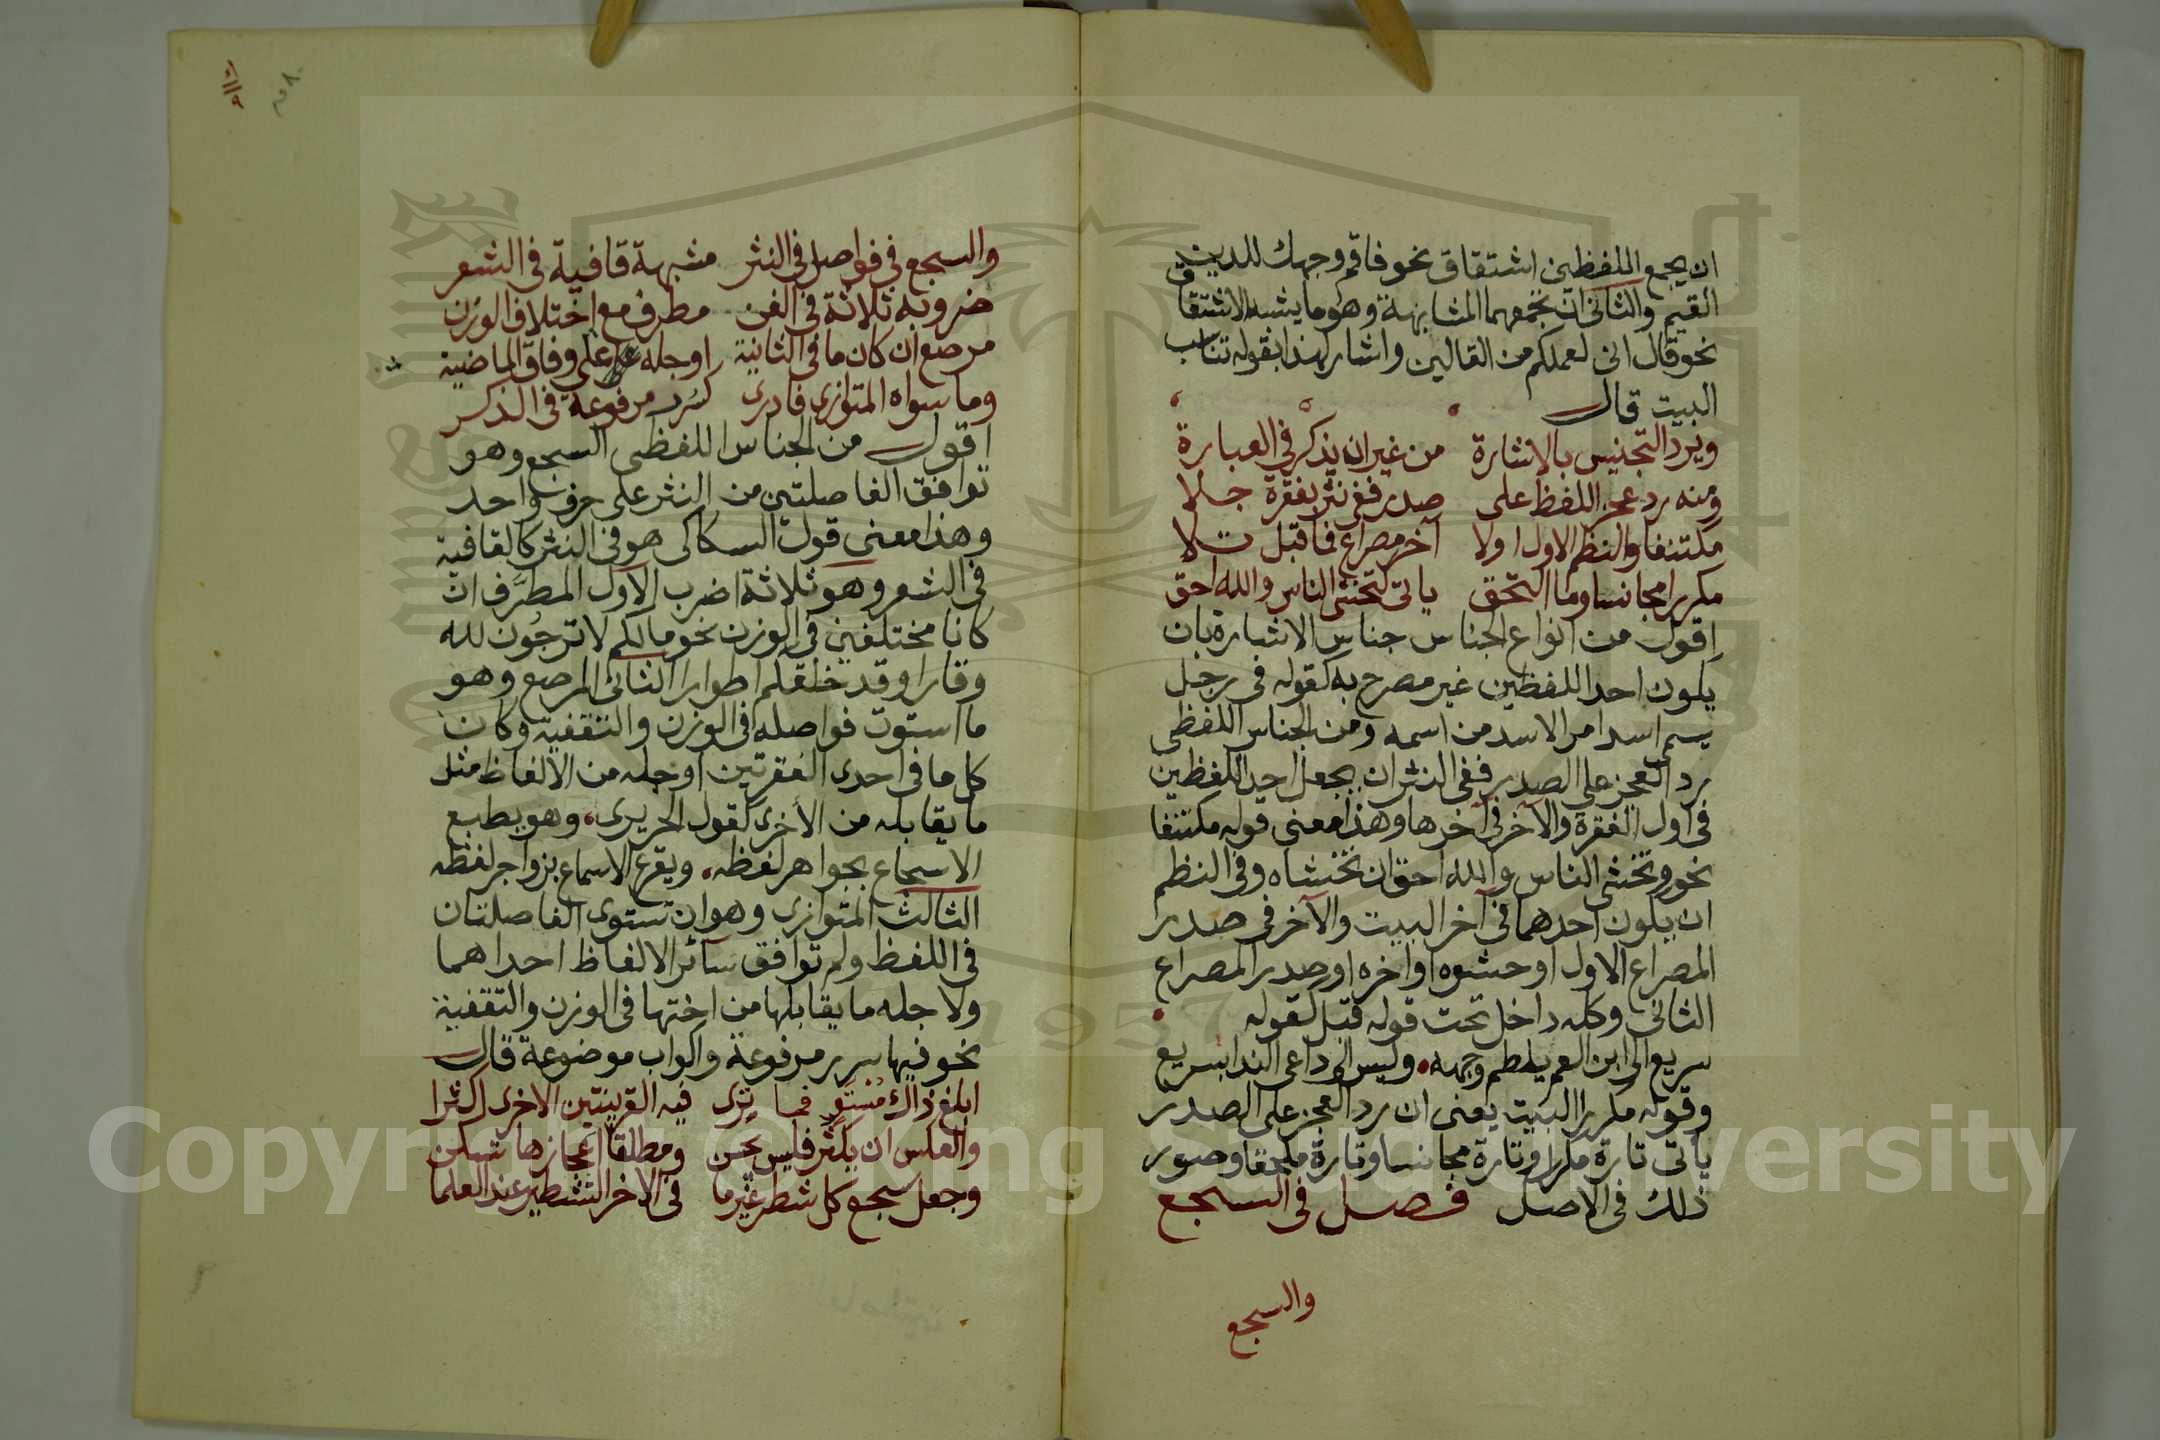 ان يجمع اللفظين اشتقاق نحو فاقم وجهك للدين
القيم والثاني ان تجمعهما المشابهة وهو ما يشبه الاشتقاق
نحو قال اني لعملكم من القالين واشار لهذا بقوله تناسب
البيت قال
ويرد التجنيس بالاشارة من غير ان يذكر في العبارة
ومنه رد عجز اللفظ على صدر ففي نثر بفقرة جلا
مكتنفا والنظم الاول اولا آخر مصراع فما قبل تلا
مكررا مجانسا وما التحق ياتي كتخشى الناس والله احق
اقول من انواع الجناس جناس الاشارة بان
يكون احد اللفظين غير مصرح به كقوله في رجل
يسمى اسدا مر الاسد من اسمه ومن الجناس اللفظي
رد العجز على الصدر ففي النثر ان يجعل احد اللفظين
في اول الفقرة والآخر في آخرها وهذا معنى قوله مكتنفا
نحو وتخشى الناس والله احق ان تخشاه وفي النظم
ان يكون احدهما في آخر البيت والآخر في صدر
المصراع الاول او حشوه او اخره او صدر المصراع
الثاني وكله داخل تحت قوله قبل كقوله
سريع الى ابن العم يلطم وجهه وليس الى داعي الندا بسريع
وقوله مكررا البيت يعني ان رد العجز على الصدر
ياتي تارة مكررا وتارة مجانسا وتارة ملحقا وصور
ذلك في الاصل فصل في السجع
والسجع
والسجع في فواصل في النثر مشبهة قافية في الشعر
ضروبه ثلاثة في الفن مطرف مع اختلاف الوزن
مرصع ان كان ما في الثانية او جله على وفاق الماضية
وما سواه المتوازي فادري كسرر مرفوعة في الذكر
اقول من الجناس اللفظي السجع وهو
توافق الفاصلتين من النثر على حرف واحد
وهذا معنى قول السكاكي هو في النثر كالقافية
في الشعر وهو ثلاثة اضرب الاول المطرف ان
كانا مختلفين في الوزن نحو مالكم لا ترجون لله
وقارا وقد خلقكم اطوارا الثاني المرصع وهو
ما استوت فواصله في الوزن والتقفية وكان
كل ما في احدى الفقرتين او جله من الألفاظ مثل
ما يقابله من الأخرى كقول الحريري وهو يطبع
الاسجاع بجواهر لفظه ويقرع الاسماع بزواجر لفظه
الثالث المتوازي وهو ان تستوي الفاصلتان
في اللفظ ولم توافق سائر الالفاظ احداهما
ولا جله ما يقابلها من اختها في الوزن والتقفية
نحو فيها سرر مرفوعة واكواب موضوعة قال
ابلغ ذاك مستو فما يرى فيه القرينتين الاخرى اكثرا
والعكس ان يكثر فليس يحسن ومطلقا اعجازها تسكن
وجعل سجع كل شطر غير ما في الاخر التشطير عند العلما
Copyright © King Saud University
1957